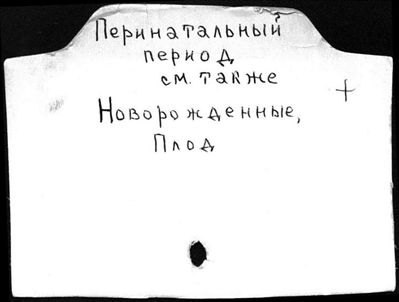 Перинатальный
период
см. также
Новорожденные,
Плод